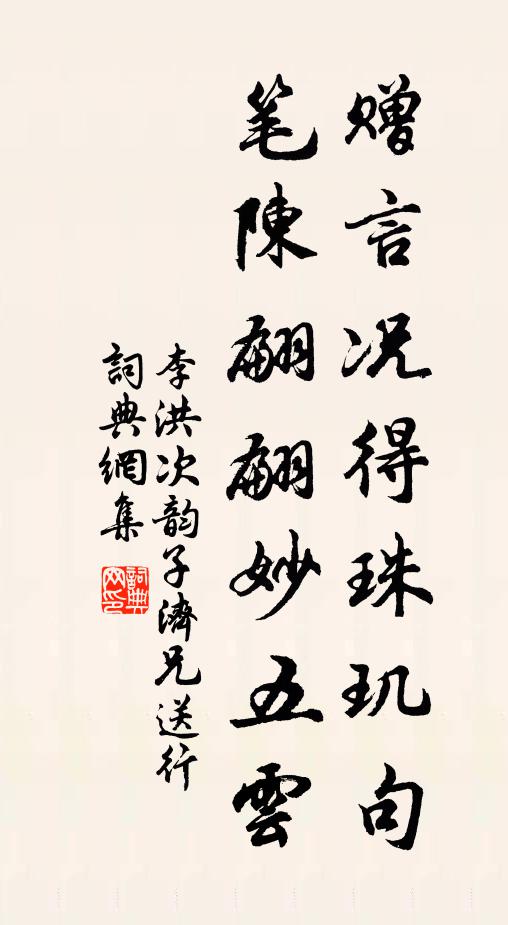 赠言况得珠玑句
笔陳翩翩妙五雲
李洪次韵子濟兄送行
詞典網集
詞典網印